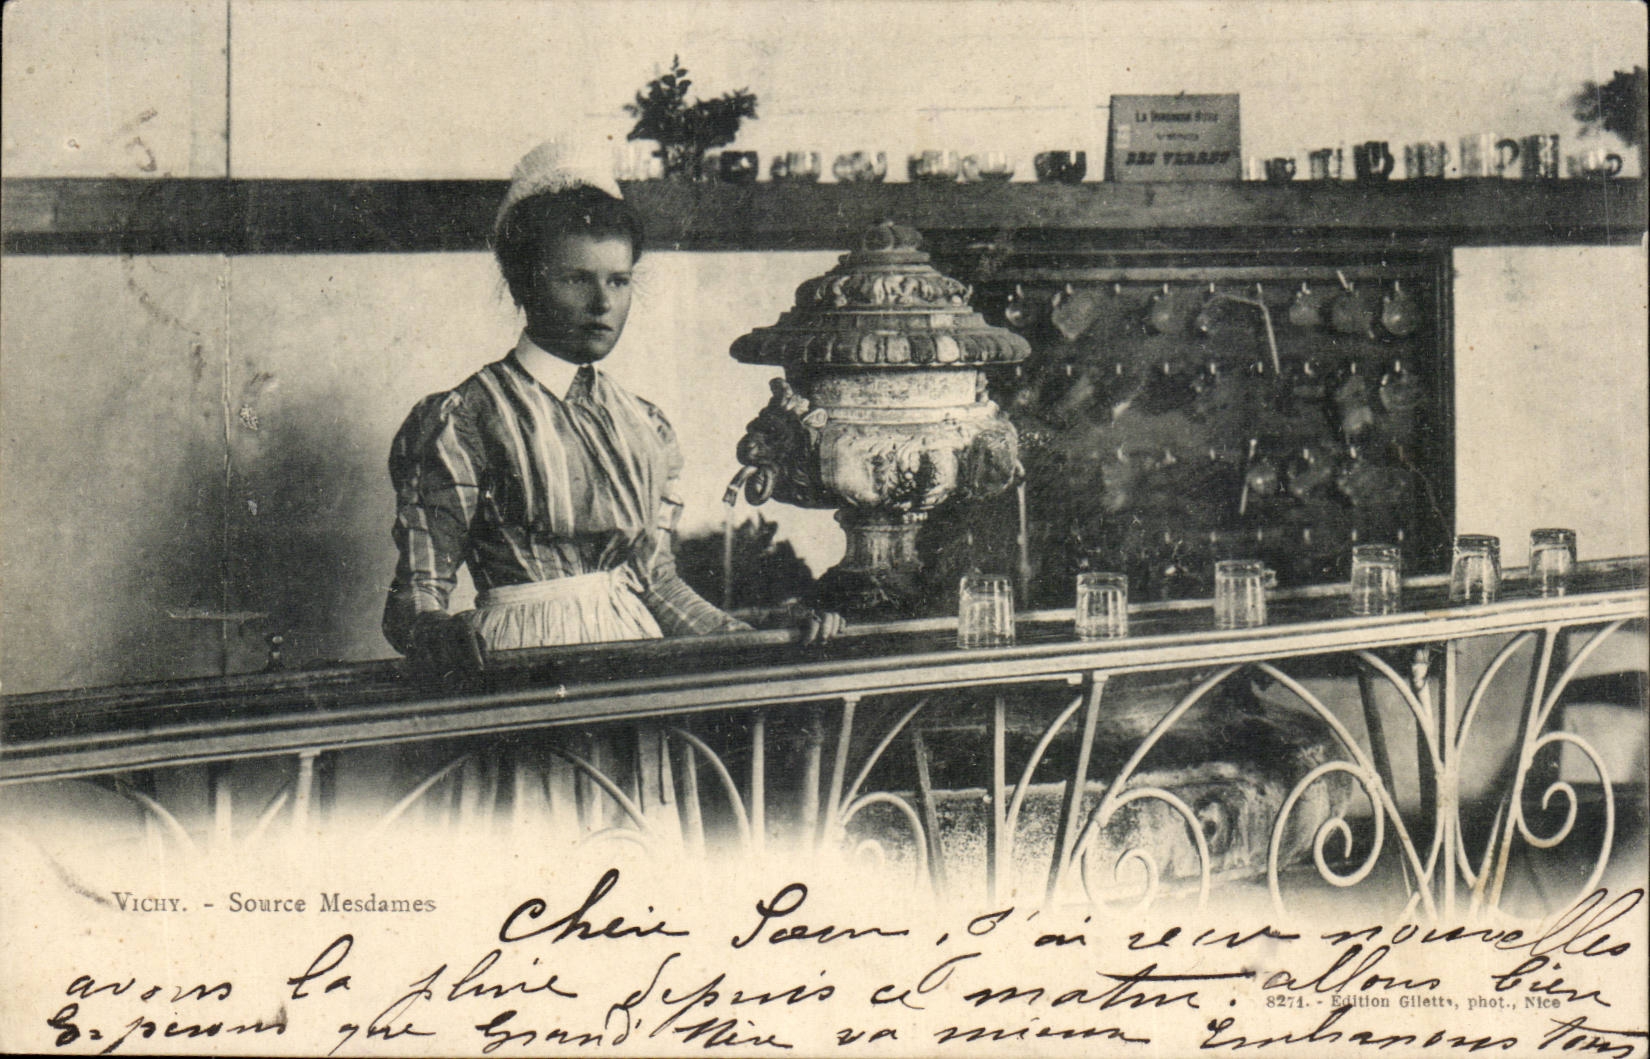 LA DONNEUSE D'EAU
VEND
DES VERRES
VICHY. - Source Mesdames
Chère Sœur, J'ai reçu nouvelles
avons la pluie depuis ce matin. allons bien
8271. - Edition Giletta, phot., Nice
Espérons que Grand' Mère va mieux Embrassons tous